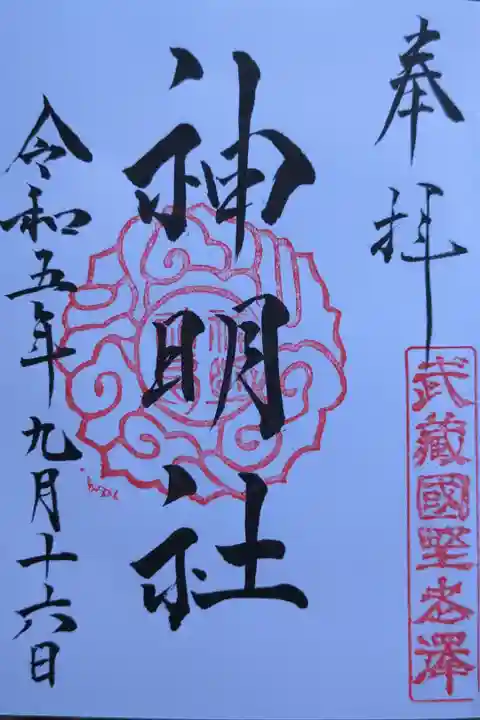 奉拝
武藏國野老澤
神明社
令和五年九月十六日